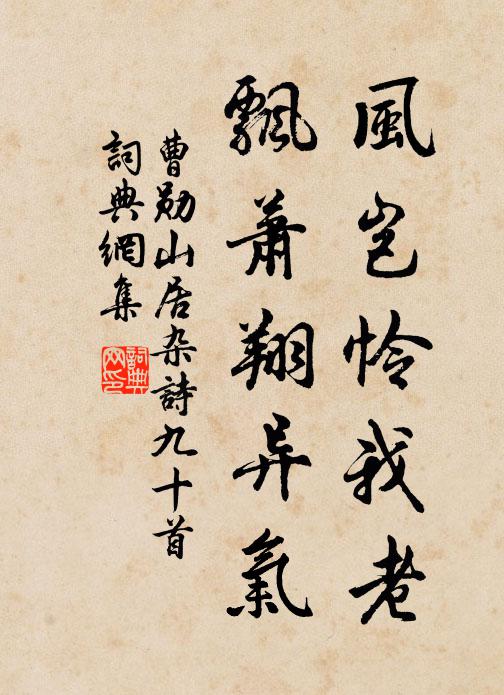 風岂怜我老
飄萧翔异氣
曹勋山居杂詩九十首
詞典網集
詞典
网印